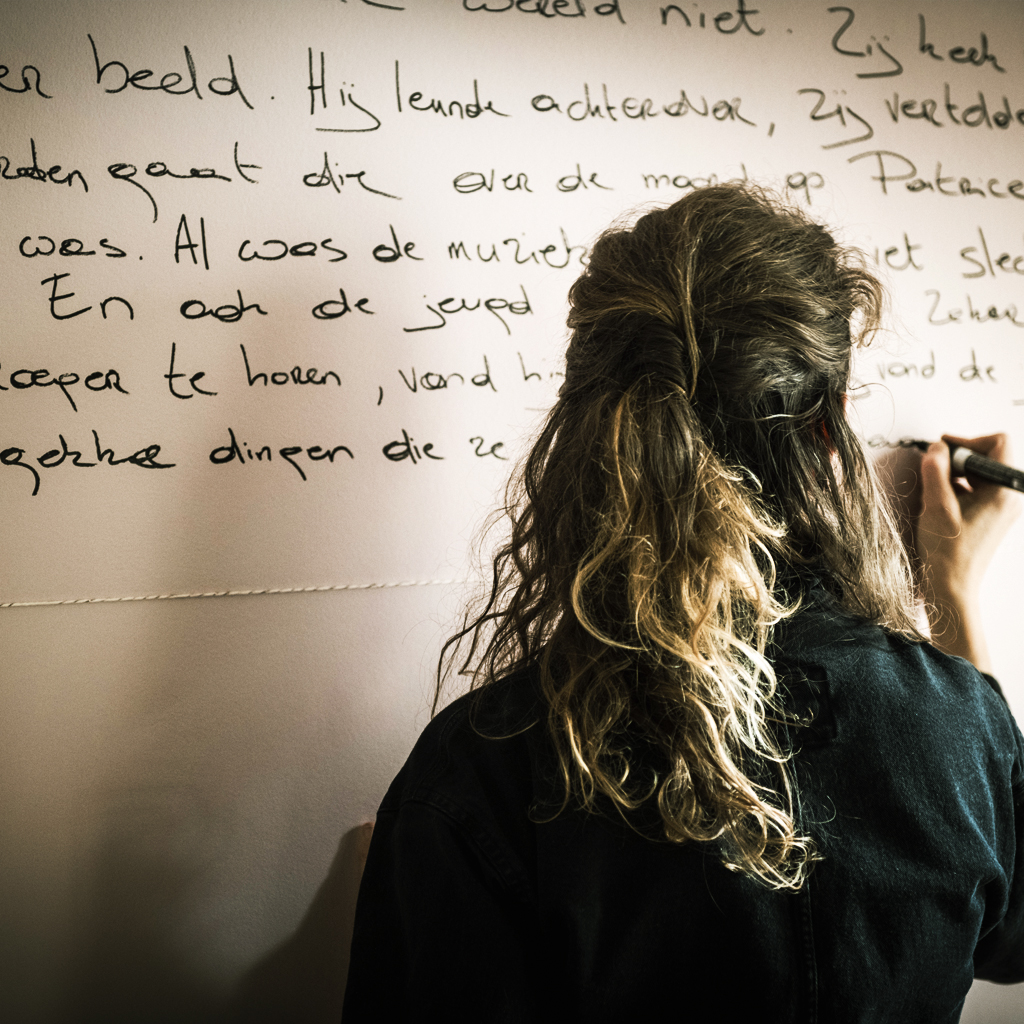 wereld niet. Zij keek
beeld. Hij leunde achterover, zij vertelde
gaat die over de maand op Patrice
was. Al was de muziek niet slec
En ook de jeugd Zeker
roeper te horen, vond hij vond de
gekke dingen die ze